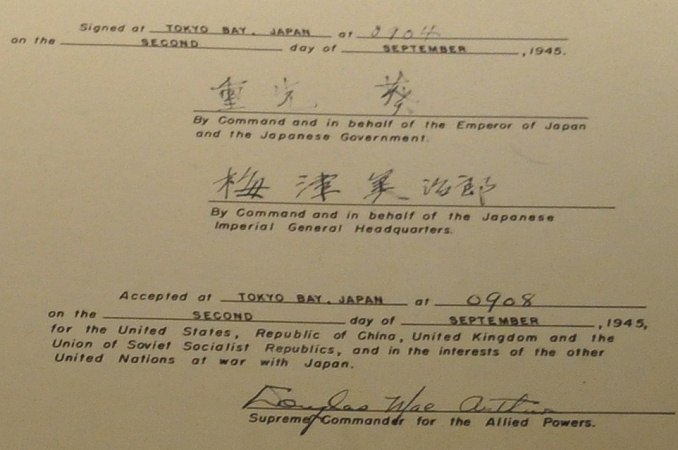 Signed at TOKYO BAY, JAPAN at 0904
on the SECOND day of SEPTEMBER, 1945.
重光 葵
By Command and in behalf of the Emperor of Japan
and the Japanese Government.
梅津美治郎
By Command and in behalf of the Japanese
Imperial General Headquarters.
Accepted at TOKYO BAY, JAPAN at 0908
on the SECOND day of SEPTEMBER, 1945,
for the United States, Republic of China, United Kingdom and the
Union of Soviet Socialist Republics, and in the interests of the other
United Nations at war with Japan.
Douglas MacArthur
Supreme Commander for the Allied Powers.